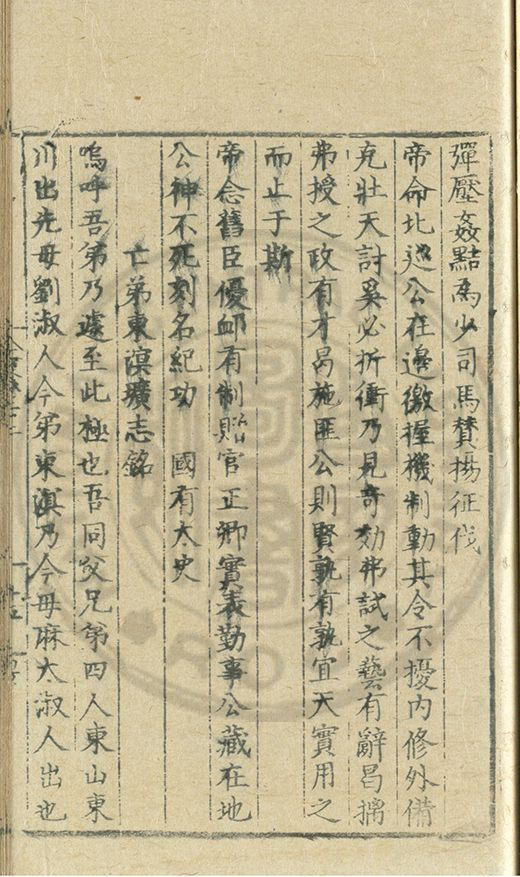 彈壓姦黠為少司馬贊揚征伐
帝命北巡公在邊徼握機制動其令不擾內修外備
克壯天討奚必折衝乃見奇効弗試之藝有辭曷摛
弗授之政有才曷施匪公則賢孰有孰宜天實用之
而止于斯
帝念舊臣優䘏有制贈官正卿實表勤事公藏在地
公神不死刻名紀功 國有太史
亡弟東溟壙志銘
嗚呼吾弟乃遽至此極也吾同父兄弟四人東山東
川出先母劉淑人今弟東溟乃今母麻太淑人出也